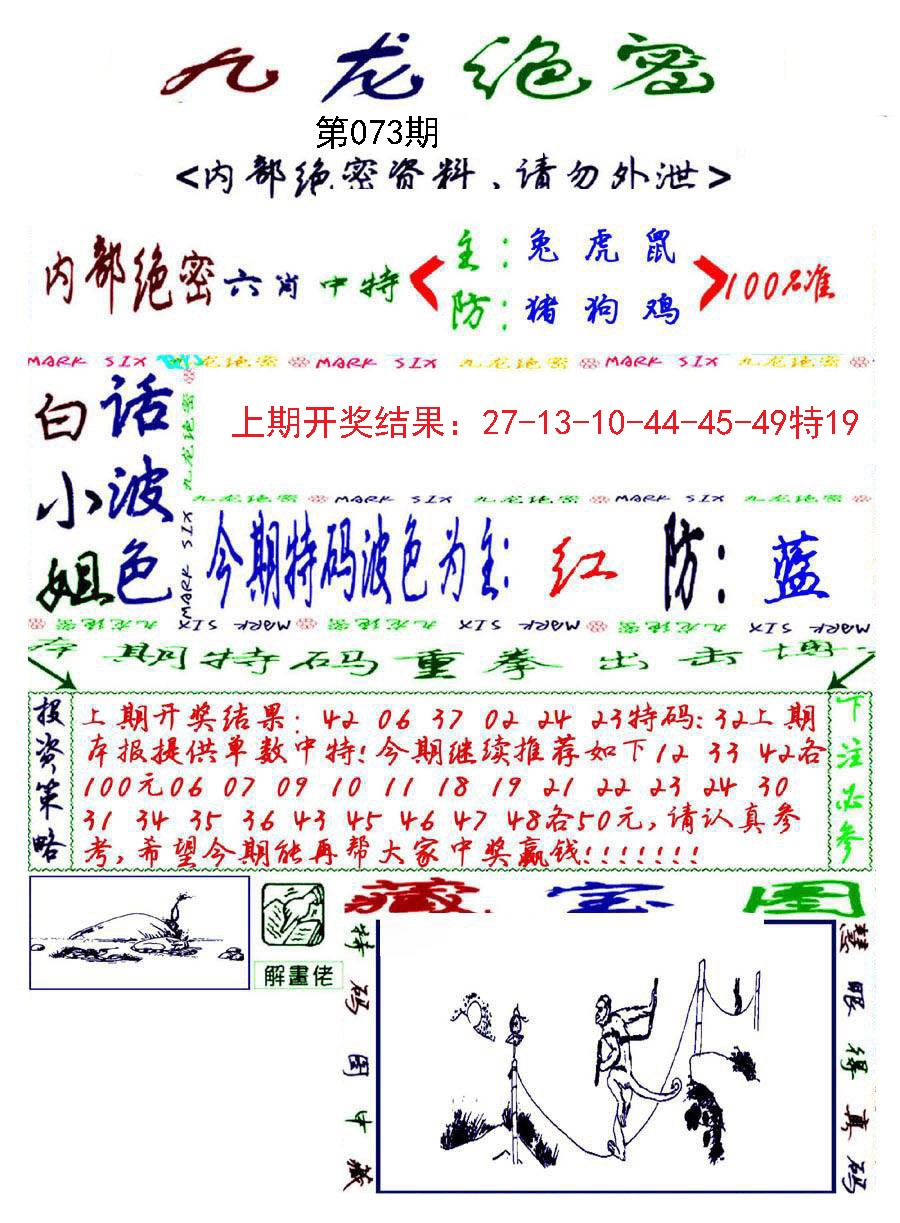 九龙绝密
第073期
<内部绝密资料、请勿外泄>
内部绝密六肖中特
主：兔虎鼠
防：猪狗鸡
100%准
MARK SIX 九龙绝密 MARK SIX 九龙绝密 MARK SIX 九龙绝密
白小姐
话波色
九龙绝密 MARK SIX
上期开奖结果：27-13-10-44-45-49特19
九龙绝密 MARK SIX 九龙绝密 MARK SIX 九龙绝密
今期特码波色为主：红 防：蓝
九龙绝密 MARK SIX 九龙绝密 MARK SIX 九龙绝密 MARK SIX
期特码重拳出击
投资策略
上期开奖结果：42 06 37 02 24 23特码：32上期
本报提供单数中特！今期继续推荐如下12 33 42各
100元06 07 09 10 11 18 19 21 22 23 24 30
31 34 35 36 43 45 46 47 48各50元，请认真参
考，希望今期能再帮大家中奖赢钱！！！！！！！
下注必参
解畫佬
藏宝图
特码图中藏
慧眼得真码